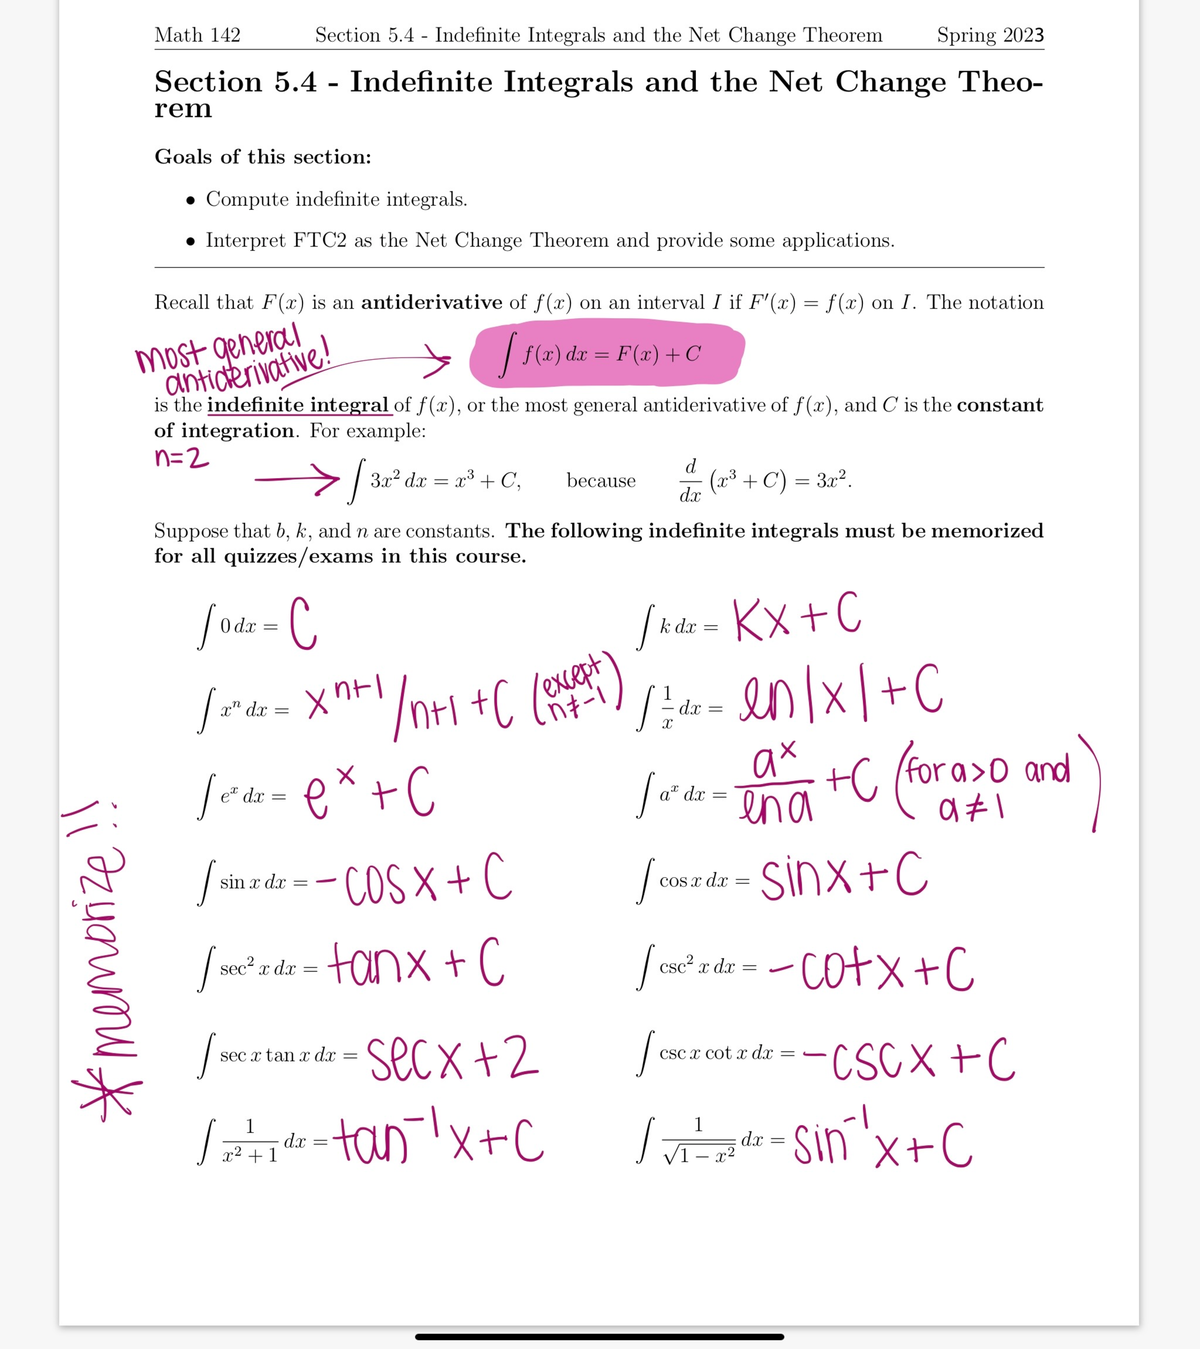 Math 142 Section 5.4 - Indefinite Integrals and the Net Change Theorem Spring 2023
Section 5.4 - Indefinite Integrals and the Net Change Theo-
rem
Goals of this section:
• Compute indefinite integrals.
• Interpret FTC2 as the Net Change Theorem and provide some applications.
Recall that F(x) is an antiderivative of f(x) on an interval I if F′(x) = f(x) on I. The notation
most general
antiderivative!
→ ∫ f(x) dx = F(x) + C
is the indefinite integral of f(x), or the most general antiderivative of f(x), and C is the constant
of integration. For example:
n=2
→ ∫ 3x² dx = x³ + C, because d/dx (x³ + C) = 3x².
Suppose that b, k, and n are constants. The following indefinite integrals must be memorized
for all quizzes/exams in this course.
∫ 0 dx = C ∫ k dx = Kx + C
∫ xⁿ dx = xⁿ⁺¹/n+1 + C (except n≠-1) ∫ 1/x dx = ln|x| + C
∫ eˣ dx = eˣ + C ∫ aˣ dx = aˣ/ln a + C (for a>0 and a≠1)
∫ sin x dx = -cosx + C ∫ cos x dx = sinx + C
∫ sec² x dx = tanx + C ∫ csc² x dx = -cotx + C
∫ sec x tan x dx = secx + 2 ∫ csc x cot x dx = -cscx + C
∫ 1/(x² + 1) dx = tan⁻¹x + C ∫ 1/√(1 − x²) dx = sin⁻¹x + C
*memorize!!